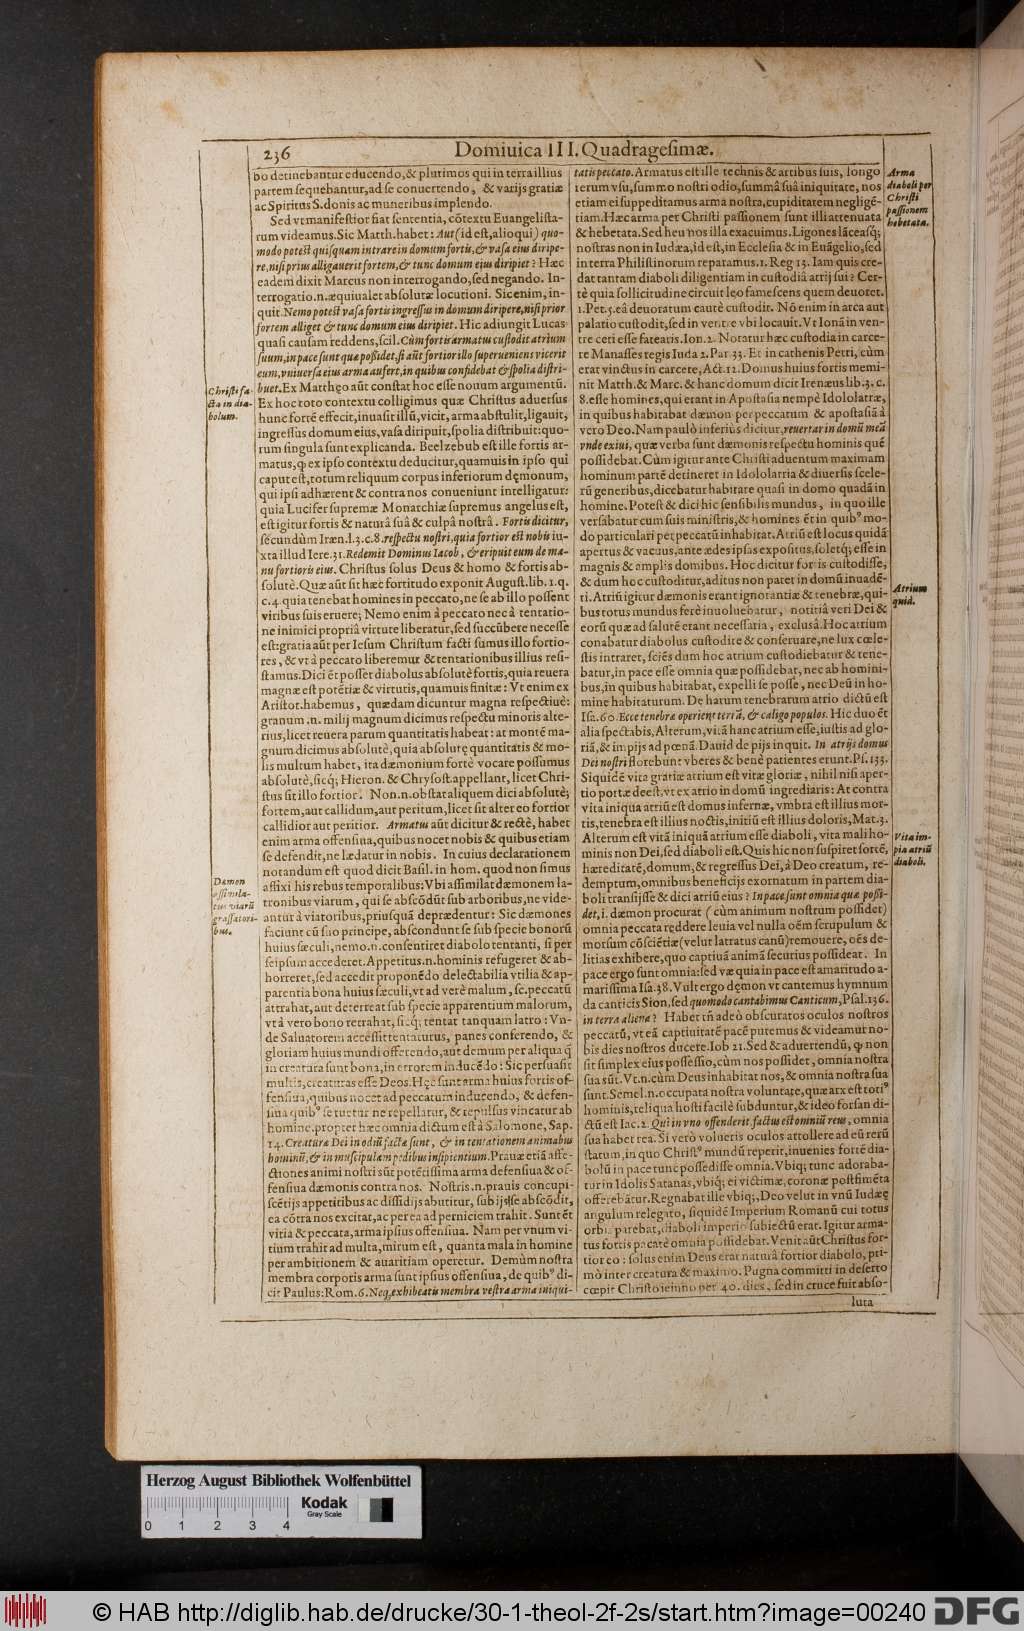 236 Domiuica III. Quadragesimæ.
bo detinebantur educendo, & plutimos qui in terra illius
partem sequebantur, ad se conuertendo, & varijs gratiæ
ac Spiritus S. donis ac muneribus implendo.
Sed vt manifestior fiat sententia, cõtextu Euangelista-
rum videamus. Sic Matth. habet: Aut (id est, alioqui) quo-
modo potest quisquam intrare in domum fortis, & vasa eius diripe-
re, nisi prius alligauerit fortem, & tunc domum eius diripiet? Hæc
eadem dixit Marcus non interrogando, sed negando. In-
terrogatio .n. æquiualet absolutæ locutioni. Sic enim, in-
quit. Nemo potest vasa fortis ingressus in domum diripere, nisi prior
fortem alliget & tunc domum eius diripiet. Hic adiungit Lucas
quasi causam reddens, scil. Cùm fortis armatus custodit atrium
suum, in pace sunt quæ possidet, si aũt fortior illo superueniens vicerit
eum, vniuersa eius arma aufert, in quibus confidebat & spolia distri-
buet. Ex Matthęo aũt constat hoc esse nouum argumentũ.
Ex hoc toto contextu colligimus quæ Christus aduersus
hunc fortē effecit, inuasit illũ, vicit, arma abstulit, ligauit,
ingressus domum eius, vasa diripuit, spolia distribuit: quo-
rum singula sunt explicanda. Beelzebub est ille fortis ar-
matus, ꝙ ex ipso contextu deducitur, quamuis in ipso qui
caput est, totum reliquum corpus inferiorum dęmonum,
qui ipsi adhærent & contra nos conueniunt intelligatur:
quia Lucifer supremæ Monarchiæ supremus angelus est,
est igitur fortis & naturâ suâ & culpâ nostrâ. Fortis dicitur,
secundùm Iræn. l. 3. c. 8. respectu nostri, quia fortior est nobis iu-
xta illud Iere. 31. Redemit Dominus Iacob, & eripuit eum de ma-
nu fortioris eius. Christus solus Deus & homo & fortis ab-
solutè. Quæ aũt sit hæc fortitudo exponit August. lib. 2. q.
c. 4. quia tenebat homines in peccato, ne se ab illo possent
viribus suis eruere; Nemo enim à peccato nec à tentatio-
ne inimici propriâ virtute liberatur, sed succũbere necesse
est: gratia aũt per Iesum Christum facti sumus illo fortio-
res, & vt à peccato liberemur & tentationibus illius resi-
stamus. Dici ēt posset diabolus absolutè fortis, quia reuera
magnæ est potētiæ & virtutis, quamuis finitæ: Vt enim ex
Aristot. habemus, quædam dicuntur magna respectiuè:
granum .n. milij magnum dicimus respectu minoris alte-
rius, licet reuera parum quantitatis habeat: at montē ma-
gnum dicimus absolutè, quia absolutę quantitatis & mo-
lis multum habet, ita dæmonium fortè vocare possumus
absolutè, sicq; Hieron. & Chrysost. appellant, licet Chri-
stus sit illo fortior. Non .n. obstat aliquem dici absolutè;
fortem, aut callidum, aut peritum, licet sit alter eo fortior
callidior aut peritior. Armatus aũt dicitur & rectè, habet
enim arma offensiua, quibus nocet nobis & quibus etiam
se defendit, ne lædatur in nobis. In cuius declarationem
notandum est quod dicit Basil. in hom. quod non simus
affixi his rebus temporalibus: Vbi assimilat dæmonem la-
tronibus viarum, qui se abscõdũt sub arboribus, ne vide-
antur à viatoribus, priusquã deprædentur: Sic dæmones
faciunt cũ suo principe, abscondunt se sub specie bonorũ
huius sæculi, nemo .n. consentiret diabolo tentanti, si per
seipsum accederet. Appetitus .n. hominis refugeret & ab-
horreret, sed accedit proponēdo delectabilia vtilia & ap-
parentia bona huius sæculi, vt ad verè malum, sc. peccatũ
attrahat, aut deterreat sub specie apparentium malorum,
vt à vero bono retrahat, sicq; tentat tanquam latro: Vn-
de Saluatorem accessit tentaturus, panes conferendo, &
gloriam huius mundi offerendo, aut demum per aliqua q̃
in creatura sunt bona, in errorem inducēdo: Sic persuasit
multis, creaturas esse Deos. Hęc sunt arma huius fortis of-
fensiua, quibus nocet ad peccatum inducendo, & defen-
siua quibꝰ se tuetur ne repellatur, & repulsus vincatur ab
homine. propter hæc omnia dictum est à Salomone, Sap.
14. Creaturæ Dei in odiũ factæ sunt, & in tentationem animabus
hominũ, & in muscipulam pedibus insipientium. Prauæ etiã affe-
ctiones animi nostri sũt potētissima arma defensiua & of-
fensiua dæmonis contra nos. Nostris .n. prauis concupi-
scētijs appetitibus ac dissidijs abutitur, sub ijs se abscõdit,
ea cõtra nos excitat, ac per ea ad perniciem trahit. Sunt ēt
vitia & peccata, arma ipsius offensiua. Nam per vnum vi-
tium trahit ad multa, mirum est, quanta mala in homine
per ambitionem & auaritiam operetur. Demùm nostra
membra corporis arma sunt ipsius offensiua, de quibꝰ di-
cit Paulus: Rom. 6. Neq; exhibeatis membra vestra arma iniqui-
Christi fa-
cta in dia-
bolum.
Dæmon
assimila-
tus viarũ
grassatori-
bus.
tatis peccato. Armatus est ille technis & artibus suis, longo
rerum vsu, summo nostri odio, summâ suâ iniquitate, nos
etiam ei suppeditamus arma nostra, cupiditatem negligē-
tiam. Hæc arma per Christi passionem sunt illi attenuata
& hebetata. Sed heu nos illa exacuimus. Ligones lãceasq;
nostras non in Iudæa, id est, in Ecclesia & in Euãgelio, sed
in terra Philistinorum reparamus. 1. Reg 13. Iam quis cre-
dat tantam diaboli diligentiam in custodiâ atrij sui? Cer-
tè quia sollicitudine circuit leo famescens quem deuoret.
1. Pet. 5. eâ deuoratum cautè custodit. Nõ enim in arca aut
palatio custodit, sed in ventre vbi locauit. Vt Ionã in ven-
tre ceti esse fatearis. Ion. 2. Notatur hæc custodia in carce-
re Manasses regis Iuda 2. Par. 33. Et in cathenis Petri, cùm
erat vinctus in carcere, Act. 12. Domus huius fortis memi-
nit Matth. & Marc. & hanc domum dicit Irenæus lib. 3. c.
8. esse homines, qui erant in Apostasia nempè Idololatræ,
in quibus habitabat dæmon per peccatum & apostasiã à
vero Deo. Nam paulò inferiùs dicitur, reuertar in domũ meã
vnde exiui, quæ verba sunt dæmonis respectu hominis quē
possidebat. Cùm igitur ante Christi aduentum maximam
hominum partē detineret in Idololatria & diuersis scele-
rũ generibus, dicebatur habitare quasi in domo quadã in
homine. Potest & dici hic sensibilis mundus, in quo ille
versabatur cum suis ministris, & homines ēt in quibꝰ mo-
do particulari per peccatũ inhabitat. Atriũ est locus quidã
apertus & vacuus, ante ædes ipsas expositus, soletq; esse in
magnis & amplis domibus. Hoc dicitur fortis custodisse,
& dum hoc custoditur, aditus non patet in domũ inuadē-
ti. Atriũ igitur dæmonis erant ignorantiæ & tenebræ, qui-
bus totus mundus ferè inuoluebatur, notitiâ veri Dei &
eorũ quæ ad salutē erant necessaria, exclusâ. Hoc atrium
conabatur diabolus custodire & conseruare, ne lux cœle-
stis intraret, sciēs dum hoc atrium custodiebatur & tene-
batur, in pace esse omnia quæ possidebat, nec ab homini-
bus, in quibus habitabat, expelli se posse, nec Deũ in ho-
mine habitaturum. De harum tenebrarum atrio dictũ est
Isa. 60. Ecce tenebræ operient terrã, & caligo populos. Hic duo ēt
alia spectabis, Alterum, vitã hanc atrium esse, iustis ad glo-
riã, & impijs ad pœnã. Dauid de pijs inquit. In atrijs domus
Dei nostri florebunt vberes & benè patientes erunt. Ps. 133.
Siquidē vita gratiæ atrium est vitæ gloriæ, nihil nisi aper-
tio portæ deest, vt ex atrio in domũ ingrediaris: At contra
vita iniqua atriũ est domus infernæ, vmbra est illius mor-
tis, tenebra est illius noctis, initiũ est illius doloris, Mat. 3.
Alterum est vitã iniquã atrium esse diaboli, vita mali ho-
minis non Dei, sed diaboli est. Quis hic non suspiret sortē,
hæreditatē, domum, & regressus Dei, à Deo creatum, re-
demptum, omnibus beneficijs exornatum in partem dia-
boli transijsse & dici atriũ eius? In pace sunt omnia quæ possi-
det, i. dæmon procurat (cùm animum nostrum possidet)
omnia peccata reddere leuia vel nulla oēm scrupulum &
morsum cõsciētiæ (velut latratus canũ) remouere, oēs de-
litias exhibere, quo captiuã animã securius possideat. In
pace ergo sunt omnia: sed væ quia in pace est amaritudo a-
marissima Isa. 38. Vult ergo dęmon vt cantemus hymnum
da canticis Sion, sed quomodo cantabimus Canticum, Psal. 136.
in terra aliena? Habet tñ adeò obscuratos oculos nostros
peccatũ, vt eã captiuitatē pacē putemus & videamur no-
bis dies nostros ducere. Iob 21. Sed & aduertendũ, ꝙ non
sit simplex eius possessio, cùm nos possidet, omnia nostra
sua sũt. Vt .n. cùm Deus inhabitat nos, & omnia nostra sua
sunt. Semel .n. occupata nostra voluntate, quæ arx est totiꝰ
hominis, reliqua hosti facilè subduntur, & ideo forsan di-
ctũ est Iac. 2. Qui in vno offenderit, factus est omniũ reus, omnia
sua habet rea. Si verò volueris oculos attollere ad eũ rerũ
statum, in quo Christꝰ mundũ reperit, inuenies fortē dia-
bolũ in pace tunc possedisse omnia. Vbiq; tunc adoraba-
tur in Idolis Satanas, vbiq; ei victimæ, coronæ postfimēta
offerebãtur. Regnabat ille vbiq;, Deo velut in vnũ Iudææ
angulum relegato, siquidē Imperium Romanũ cui totus
orbis parebat, diaboli imperio subiectũ erat. Igitur arma-
tus fortis pacatè omnia possidebat. Venit aũt Christus for-
tior eo: solus enim Deus erat naturâ fortior diabolo, pri-
mò inter creatura & maximo. Pugna committi in deserto
cœpit Christo ieiuno per 40. dies, sed in cruce fuit abso-
luta
Arma
diaboli per
Christi
passionem
hebetata.
Atrium
quid.
Vita im-
pia atriũ
diaboli.
Herzog August Bibliothek Wolfenbüttel
Kodak
Gray Scale
0 1 2 3 4
© HAB http://diglib.hab.de/drucke/30-1-theol-2f-2s/start.htm?image=00240 DFG